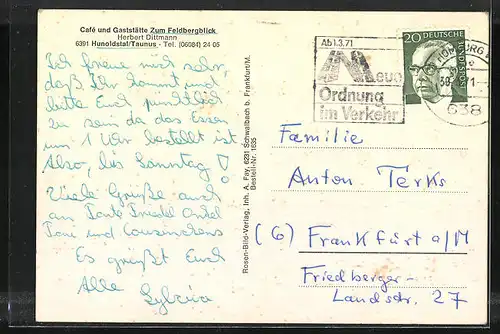 Café und Gaststätte Zum Feldbergblick
Herbert Dittmann
6391 Hunoldstal/Taunus - Tel. (06084) 24 05
Ich freue mich sehr,
daß Ihr kommt und
bitte Euch pünktlich
zu sein da das Essen
um 1 Uhr bestellt ist
Also, bis Sonntag!
Viele Grüße auch
an Tante Friedel Onkel
Toni und
Es grüßt Euch
Alle Sylvia
Rosen-Bild-Verlag, Inh. A. Fay, 6231 Schwalbach b. Frankfurt/M.
Bestell-Nr. 1635
Ab 1.3.71
Neue
Ordnung
im Verkehr
20 DEUTSCHE BUNDESPOST
638
Familie
Anton Terks
(6) Frankfurt a/M
Friedberger-
Landstr. 27